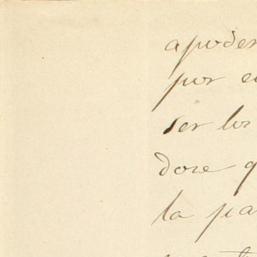 apoder
por e
ser los
dore q
la pa